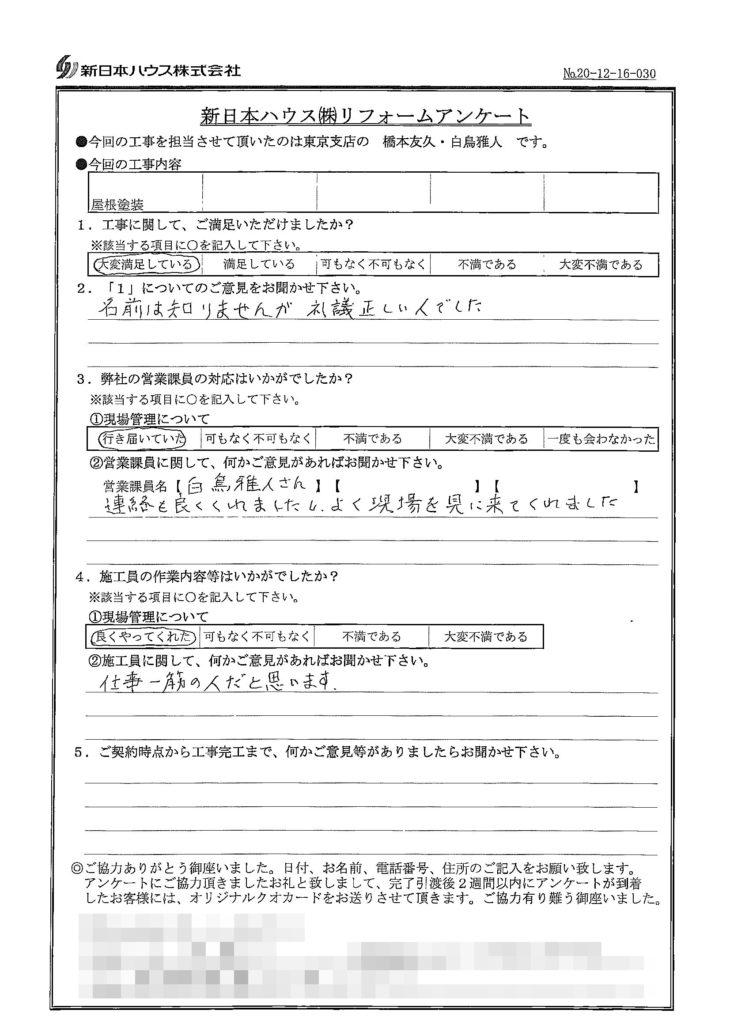 新日本ハウス株式会社
№20-12-16-030
新日本ハウス㈱リフォームアンケート
●今回の工事を担当させて頂いたのは東京支店の 橋本友久・白鳥雅人 です。
●今回の工事内容
屋根塗装
1．工事に関して、ご満足いただけましたか？
※該当する項目に○を記入して下さい。
大変満足している 満足している 可もなく不可もなく 不満である 大変不満である
2．「1」についてのご意見をお聞かせ下さい。
名前は知りませんが 礼議正しい人でした
3．弊社の営業課員の対応はいかがでしたか？
※該当する項目に○を記入して下さい。
①現場管理について
行き届いていた 可もなく不可もなく 不満である 大変不満である 一度も会わなかった
②営業課員に関して、何かご意見があればお聞かせ下さい。
営業課員名【白鳥雅人さん】【 】【 】
連絡も良くくれましたし、よく現場を見に来てくれました
4．施工員の作業内容等はいかがでしたか？
※該当する項目に○を記入して下さい。
①現場管理について
良くやってくれた 可もなく不可もなく 不満である 大変不満である
②施工員に関して、何かご意見があればお聞かせ下さい。
仕事一筋の人だと思います．
5．ご契約時点から工事完工まで、何かご意見等がありましたらお聞かせ下さい。
◎ご協力ありがとう御座いました。日付、お名前、電話番号、住所のご記入をお願い致します。
アンケートにご協力頂きましたお礼と致しまして、完了引渡後２週間以内にアンケートが到着
したお客様には、オリジナルクオカードをお送りさせて頂きます。ご協力有り難う御座いました。